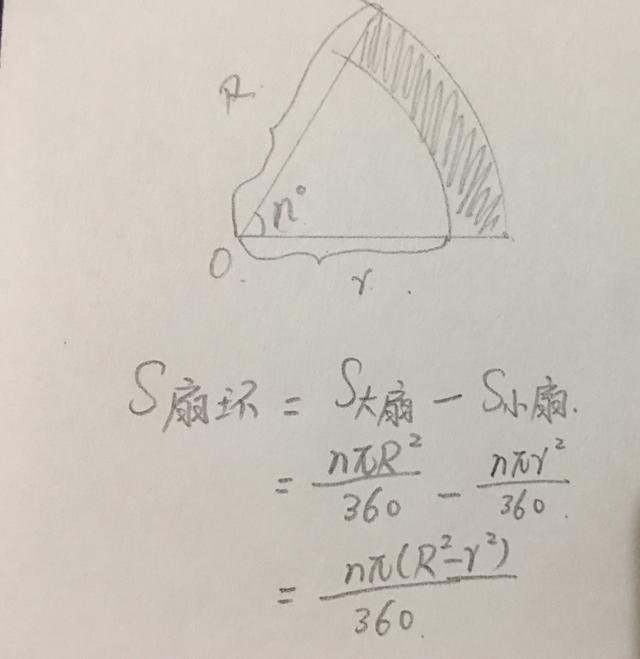 R
n°
O.
r .
S扇环 = S大扇 - S小扇.
= nπR²/360 - nπr²/360.
= nπ(R²-r²)/360.